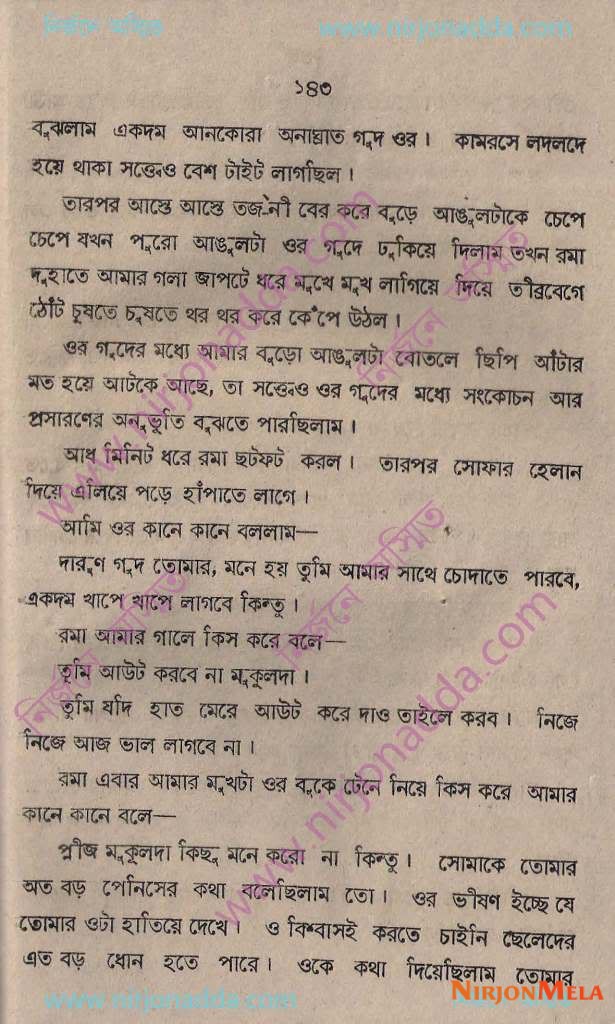 নির্জনে অস্মিত www.nirjonadda.com
১৪৩
বুঝলাম একদম আনকোরা অনাঘ্রাত গুদ ওর। কামরসে লদলদে
হয়ে থাকা সত্তেও বেশ টাইট লাগছিল।
তারপর আস্তে আস্তে তর্জনী বের করে বুড়ে আঙুলটাকে চেপে
চেপে যখন পুরো আঙুলটা ওর গুদে ঢুকিয়ে দিলাম তখন রমা
দুহাতে আমার গলা জাপটে ধরে মুখে মুখ লাগিয়ে দিয়ে তীব্রবেগে
ঠোঁট চুষতে চুষতে থর থর করে কেঁপে উঠল।
ওর গুদের মধ্যে আমার বুড়ো আঙুলটা বোতলে ছিপি আঁটার
মত হয়ে আটকে আছে, তা সত্তেও ওর গুদের মধ্যে সংকোচন আর
প্রসারণের অনুভূতি বুঝতে পারছিলাম।
আধ মিনিট ধরে রমা ছটফট করল। তারপর সোফার হেলান
দিয়ে এলিয়ে পড়ে হাঁপাতে লাগে।
আমি ওর কানে কানে বললাম—
দারুণ গুদ তোমার, মনে হয় তুমি আমার সাথে চোদাতে পারবে,
একদম খাপে খাপে লাগবে কিন্তু।
রমা আমার গালে কিস করে বলে—
তুমি আউট করবে না মুকুলদা।
তুমি যদি হাত মেরে আউট করে দাও তাইলে করব। নিজে
নিজে আজ ভাল লাগবে না।
রমা এবার আমার মুখটা ওর বুকে টেনে নিয়ে কিস করে আমার
কানে কানে বলে—
প্লীজ মুকুলদা কিছু মনে করো না কিন্তু। সোমাকে তোমার
অত বড় পেনিসের কথা বলেছিলাম তো। ওর ভীষণ ইচ্ছে যে
তোমার ওটা হাতিয়ে দেখে। ও বিশ্বাসই করতে চাইনি ছেলেদের
এত বড় ধোন হতে পারে। ওকে কথা দিয়েছিলাম তোমার
www.nirjonadda.com
NIRJONMELA
www.nirjonadda.com নির্জনে অস্মিত
নির্জনে অস্মিত
www.nirjonadda.com